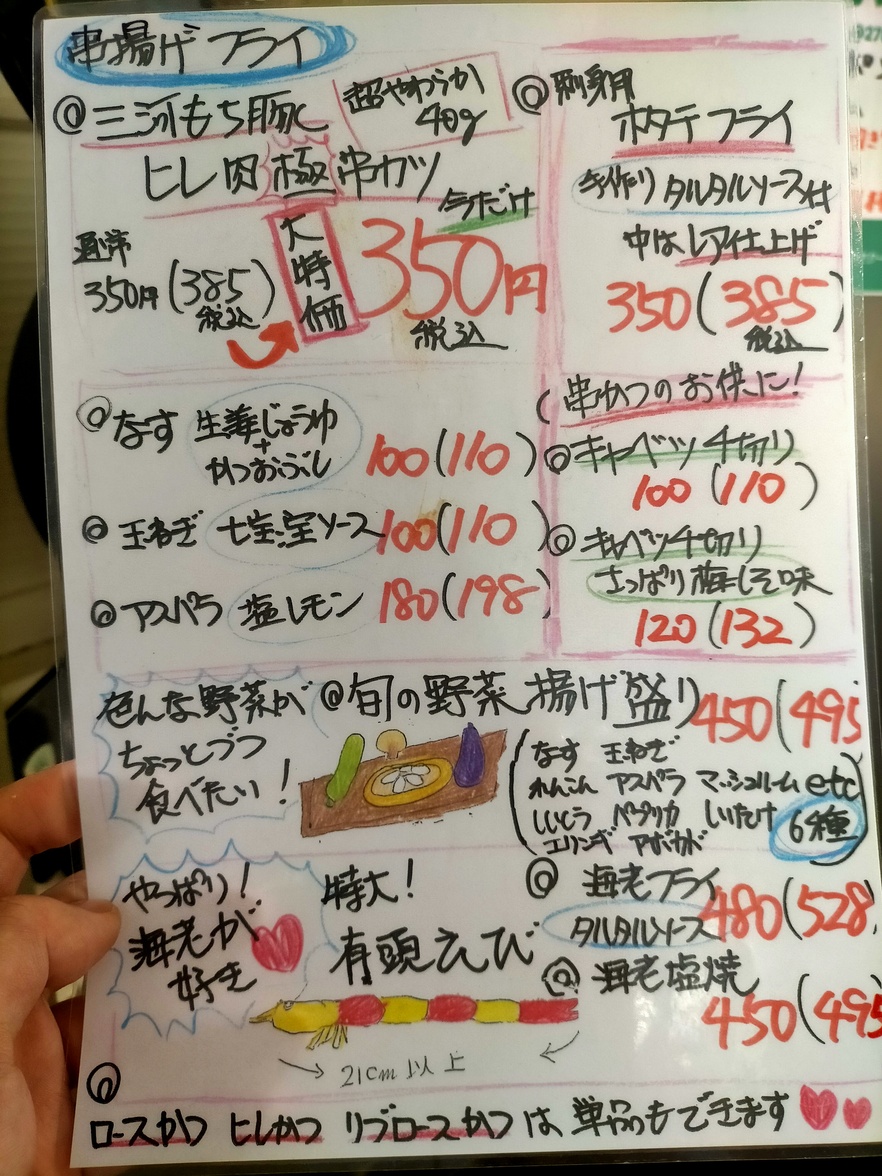 串揚げフライ
◎三河もち豚
ヒレ肉極串カツ
超やわらか
40g
今だけ
通常
350円(385)
税込
大特価
350円
税込
◎刺身用
ホタテフライ
手作りタルタルソース付
中はレア仕上げ
350(385)
税込
◎なす 生姜じょうゆ
+
かつおぶし
100(110)
◎玉ねぎ 七宝宝ソース 100(110)
◎アスパラ 塩レモン 180(198)
串かつのお供に!
◎キャベツ4切り
100(110)
◎キャベツ4切り
さっぱり梅しそ味
120(132)
色んな野菜が
ちょっとづつ
食べたい!
◎旬の野菜揚げ盛り 450(495
なす 玉ねぎ
れんこん アスパラ マッシュルーム etc
ししとう パプリカ しいたけ
エリンギ アボカド
6種
やっぱり!
海老が
好き
特大!
有頭えび
21cm以上
◎海老フライ
タルタルソース 480(528)
◎海老塩焼
450(495
◎
ロースかつ ヒレかつ リブロースかつは 単品もできます